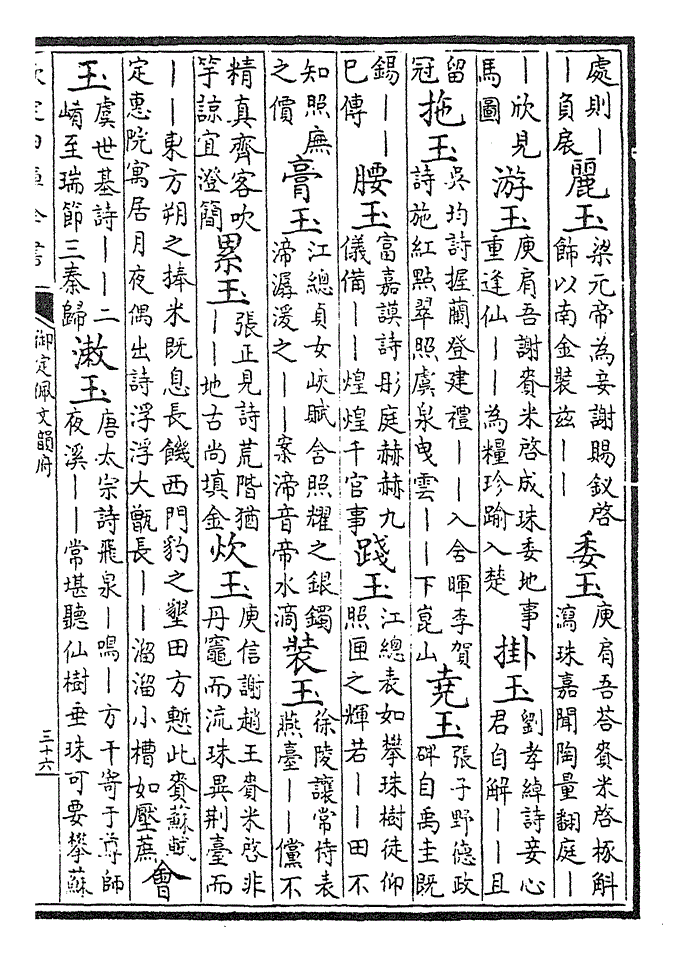 處則｜｜負扆 麗玉 梁元帝為妾謝賜釵啓飾以南金裝兹｜｜ 委玉 庾肩吾荅賚米啓㧻斛瀉珠嘉聞陶量翻庭｜
｜欣見馬圖 游玉 庾肩吾謝賚米啓成珠委地事重逢仙｜｜為糧珍踰入楚 掛玉 劉孝綽詩妾心君自解｜｜且
留冠 拖玉 吳均詩握蘭登建禮｜｜入含暉李賀詩施紅點翠照虞泉曳雲｜｜下崑山 堯玉 張子野德政碑自禹圭既
錫｜｜已傳 腰玉 富嘉謨詩彤庭赫赫九儀備｜｜煌煌千官事 踐玉 江總表如攀珠樹徒仰照匣之輝若｜｜田不
知照廡之價 膏玉 江總貞女峽賦含照耀之銀鐲渧潺湲之｜｜案渧音帝水滴 裝玉 徐陵讓常侍表燕臺｜｜儻不
精真齊客吹竽諒宜澄簡 累玉 張正見詩荒階猶｜｜地古尚填金 炊玉 庾信謝趙王賚米啓非丹竈而流珠異荆臺而
｜｜東方朔之捧米既息長饑西門豹之墾田方慙此賚蘇軾定惠院寓居月夜偶出詩浮浮大甑長｜｜溜溜小槽如壓蔗 會
玉 虞世基詩｜｜二崤至瑞節三秦歸 漱玉 唐太宗詩飛泉｜鳴｜方干寄于尊師夜溪｜｜常堪聽仙樹垂珠可要攀蘇
欽定四庫全書 御定佩文韻府 三十六